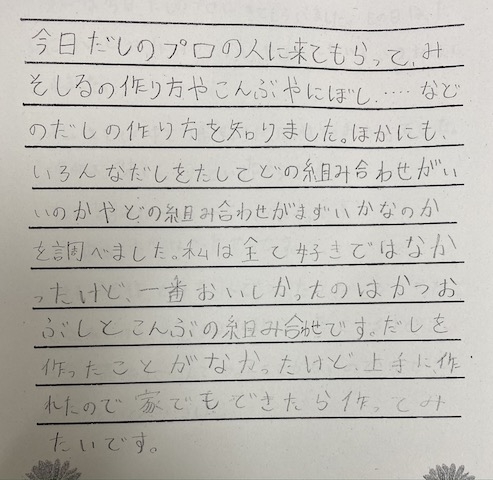 今日だしのプロの人に来てもらって、み
そしるの作り方やこんぶやにぼし、‥‥など
のだしの作り方を知りました。ほかにも、
いろんなだしをたしてどの組み合わせがい
いのかやどの組み合わせがまずいかなのか
を調べました。私は全て好きではなか
ったけど、一番おいしかったのはかつお
ぶしとこんぶの組み合わせです。だしを
作ったことがなかったけど、上手に作
れたので家でもできたら作ってみ
たいです。